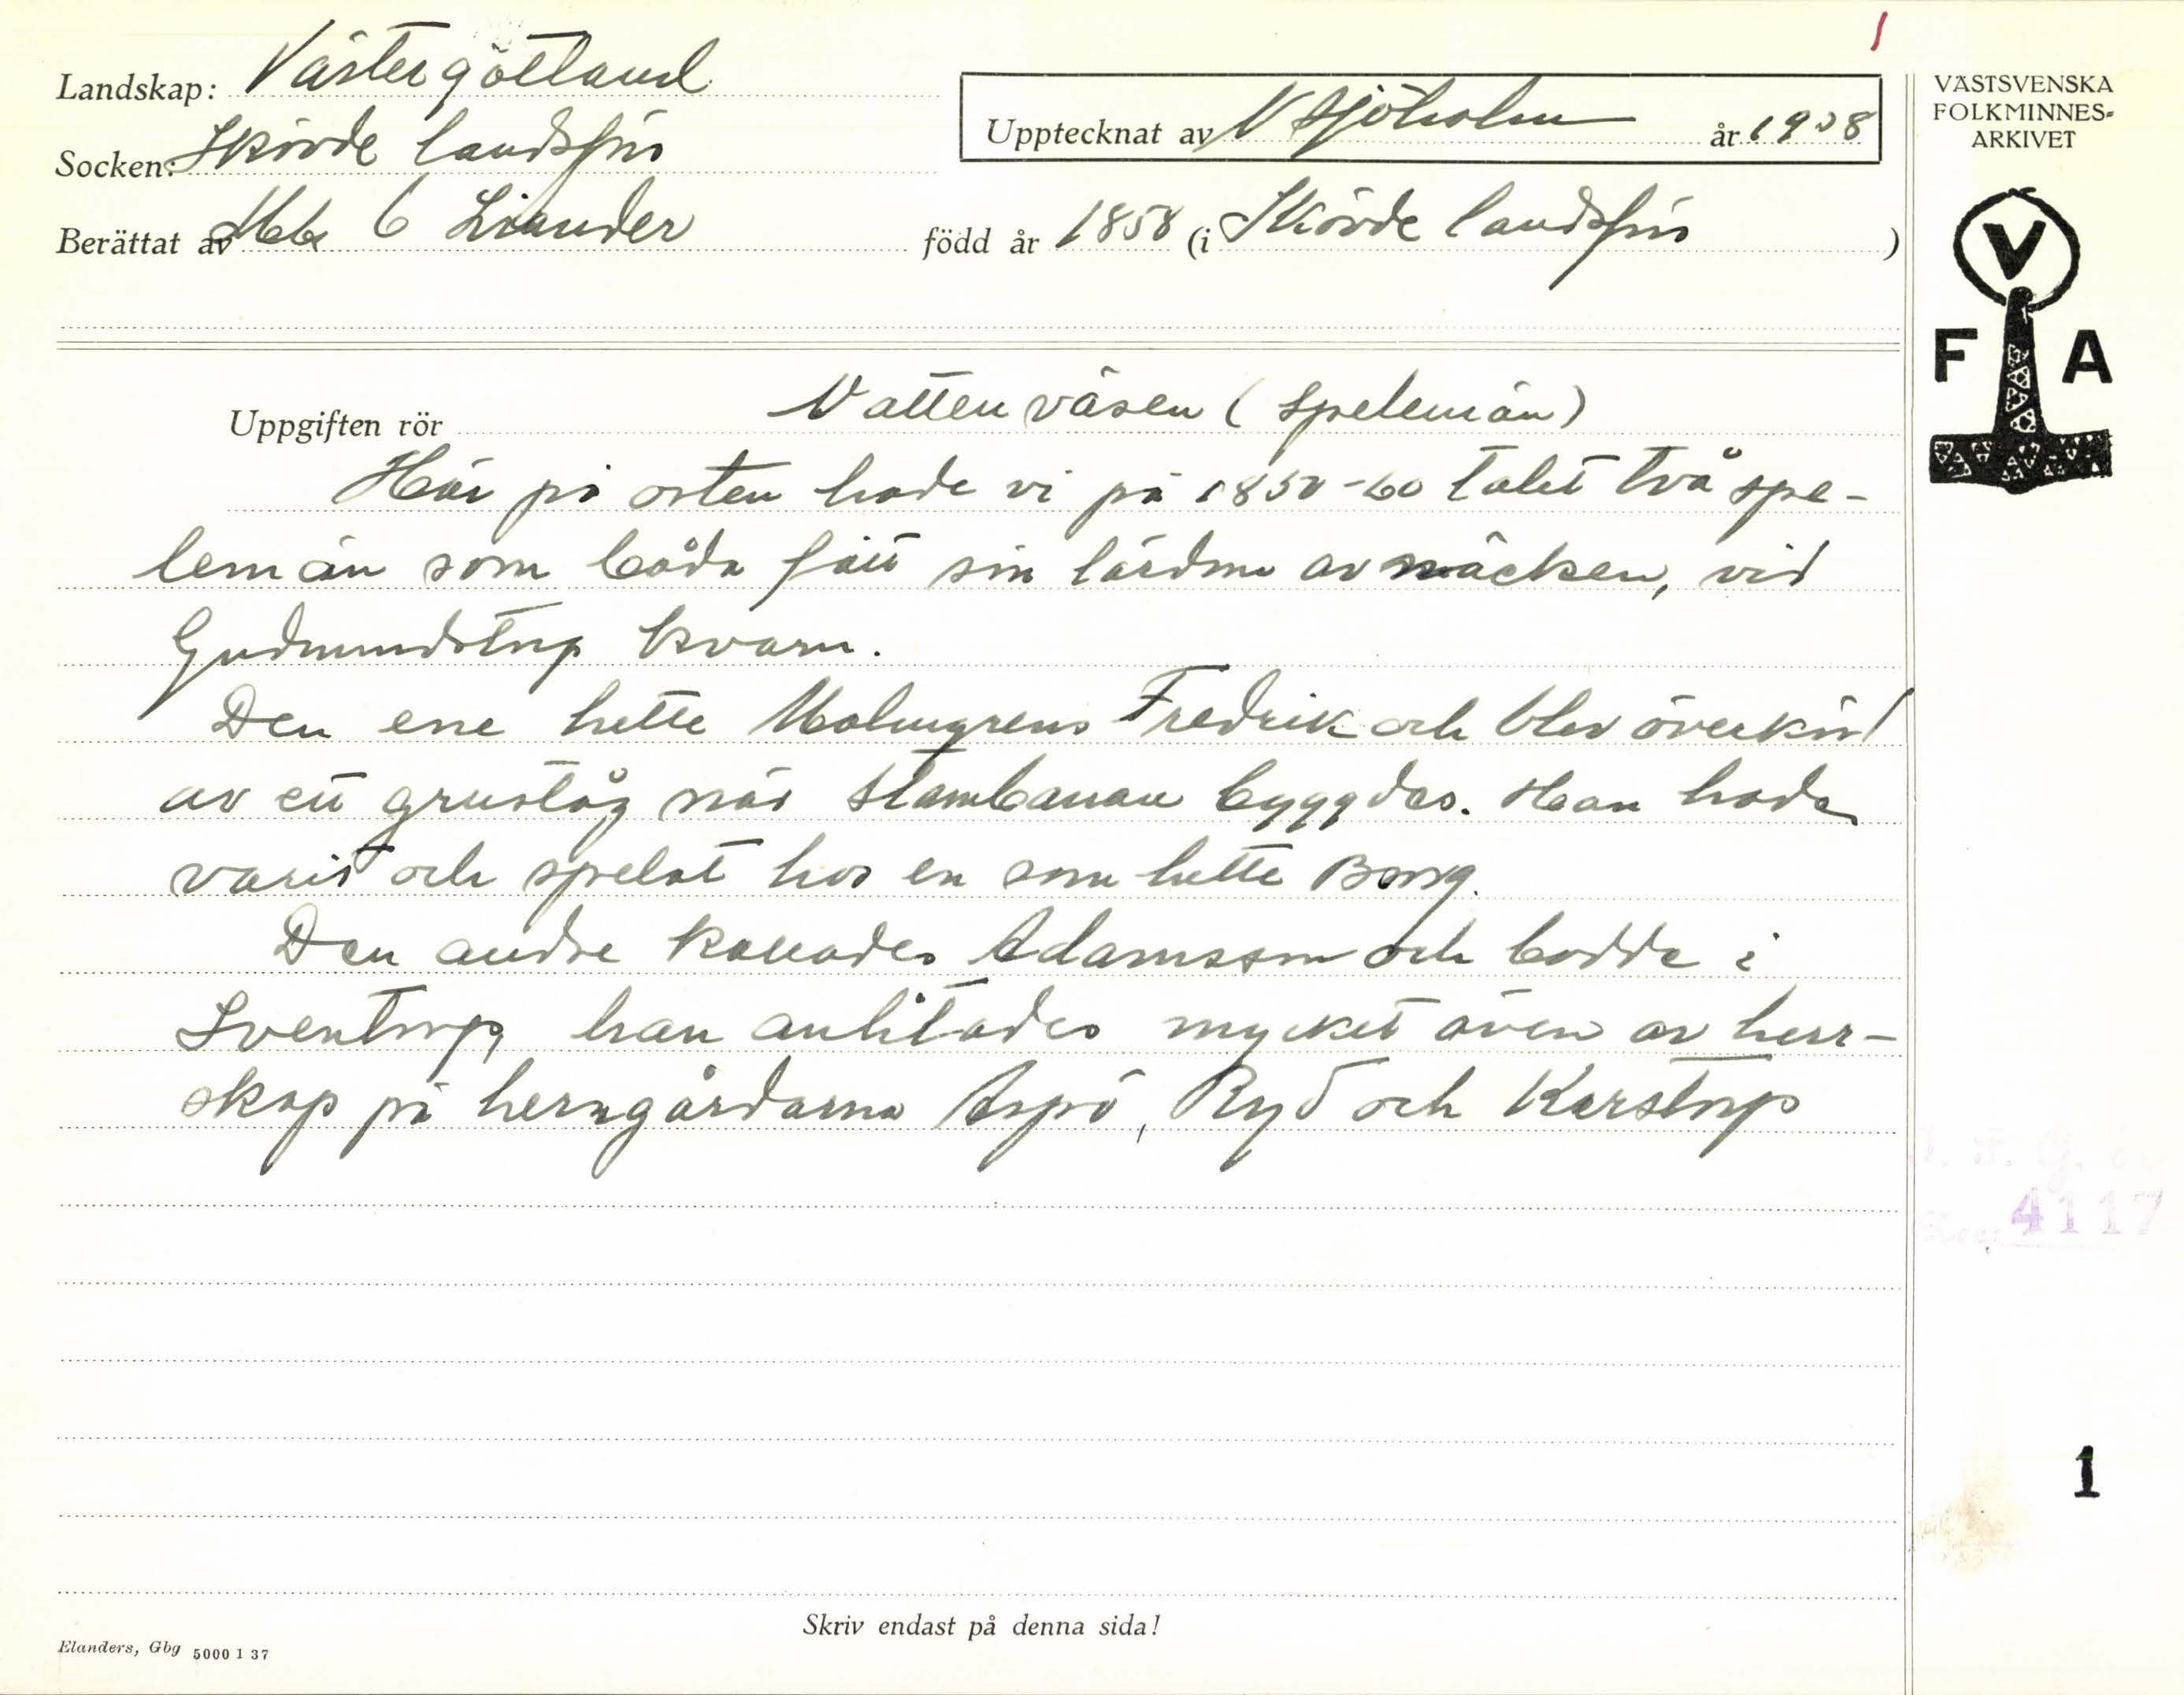 1
Landskap: Västergötland
Socken: Skövde landsförs
Upptecknat av V Sjöholm år 1938
VÄSTSVENSKA
FOLKMINNES-
ARKIVET
Berättat av Liander född år 1858 (i Skövde landsförs)
V
F A
Uppgiften rör Vattenväsen (spelemän)
Här på orten hade vi på 1850-60 talet två spe-
lemän som båda fått sin lärdom av näcken, vid
Gudmundstorp kvarn.
Den ene hette Malmgrens Fredrik och blev överkörd
av ett gruståg när stambanan byggdes. Han hade
varit och spelat hos en som hette Borg.
Den andre kallades Adamsson och bodde i
Sventorp, han anlitades mycket även av herr-
skap på herrgårdarna Aspö, Ryd och Karstorp
4117
1
Skriv endast på denna sida!
Elanders, Gbg 5000 1 37